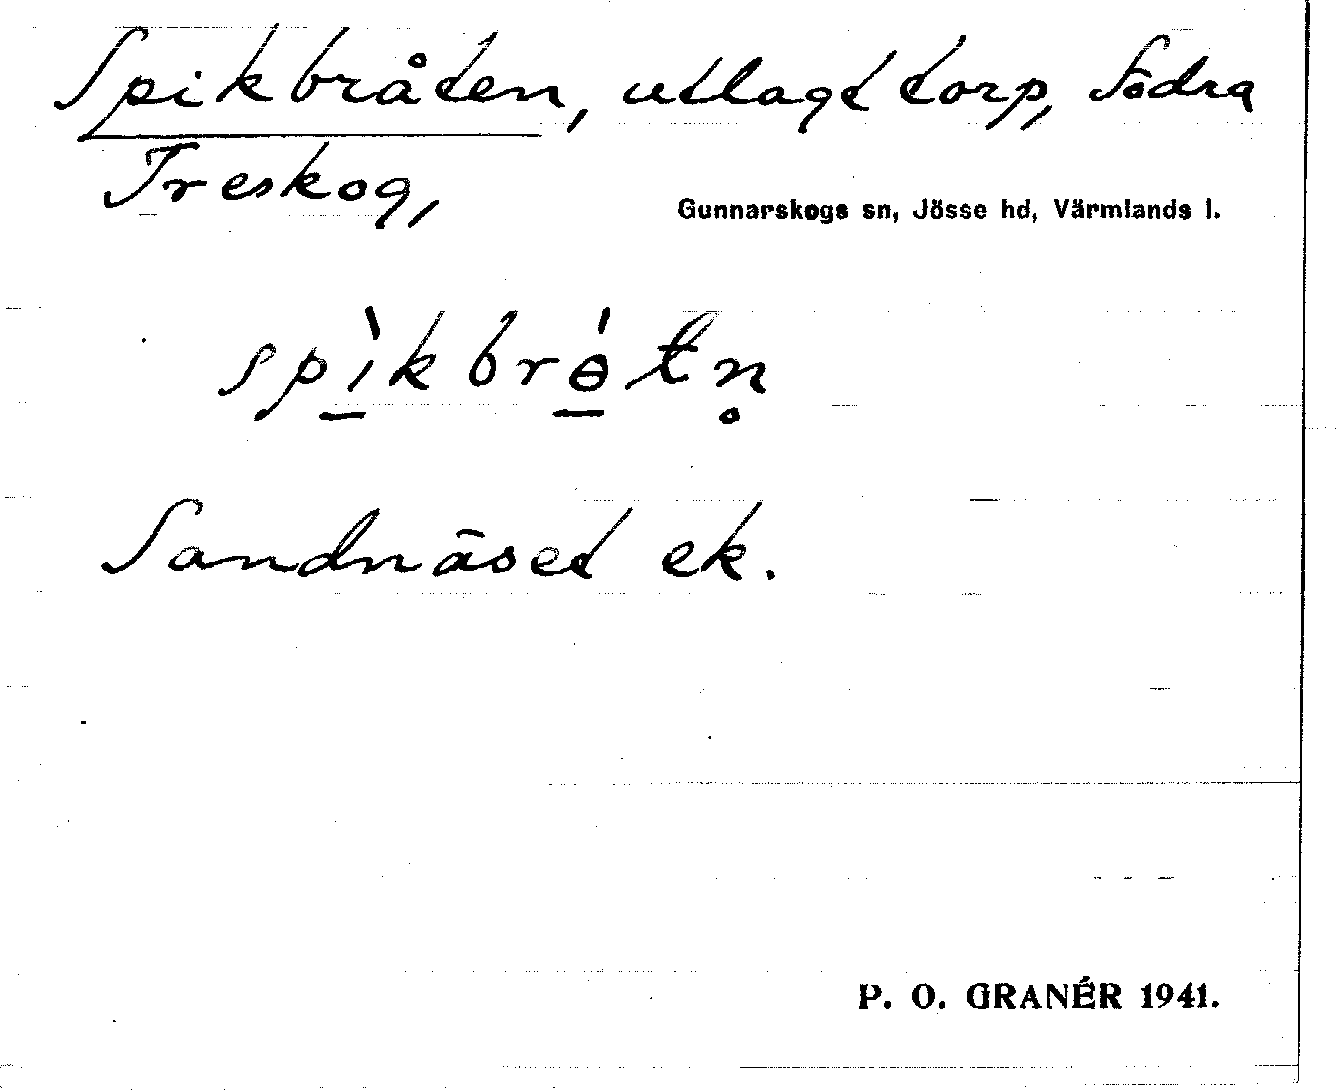 Spikbråten, utlagd torp, Södra
Treskog,
Gunnarskogs sn, Jösse hd, Värmlands l.
spì̱kbrɵ̱́tn̥
Sandnäset ek.
P. O. GRANÉR 1941.